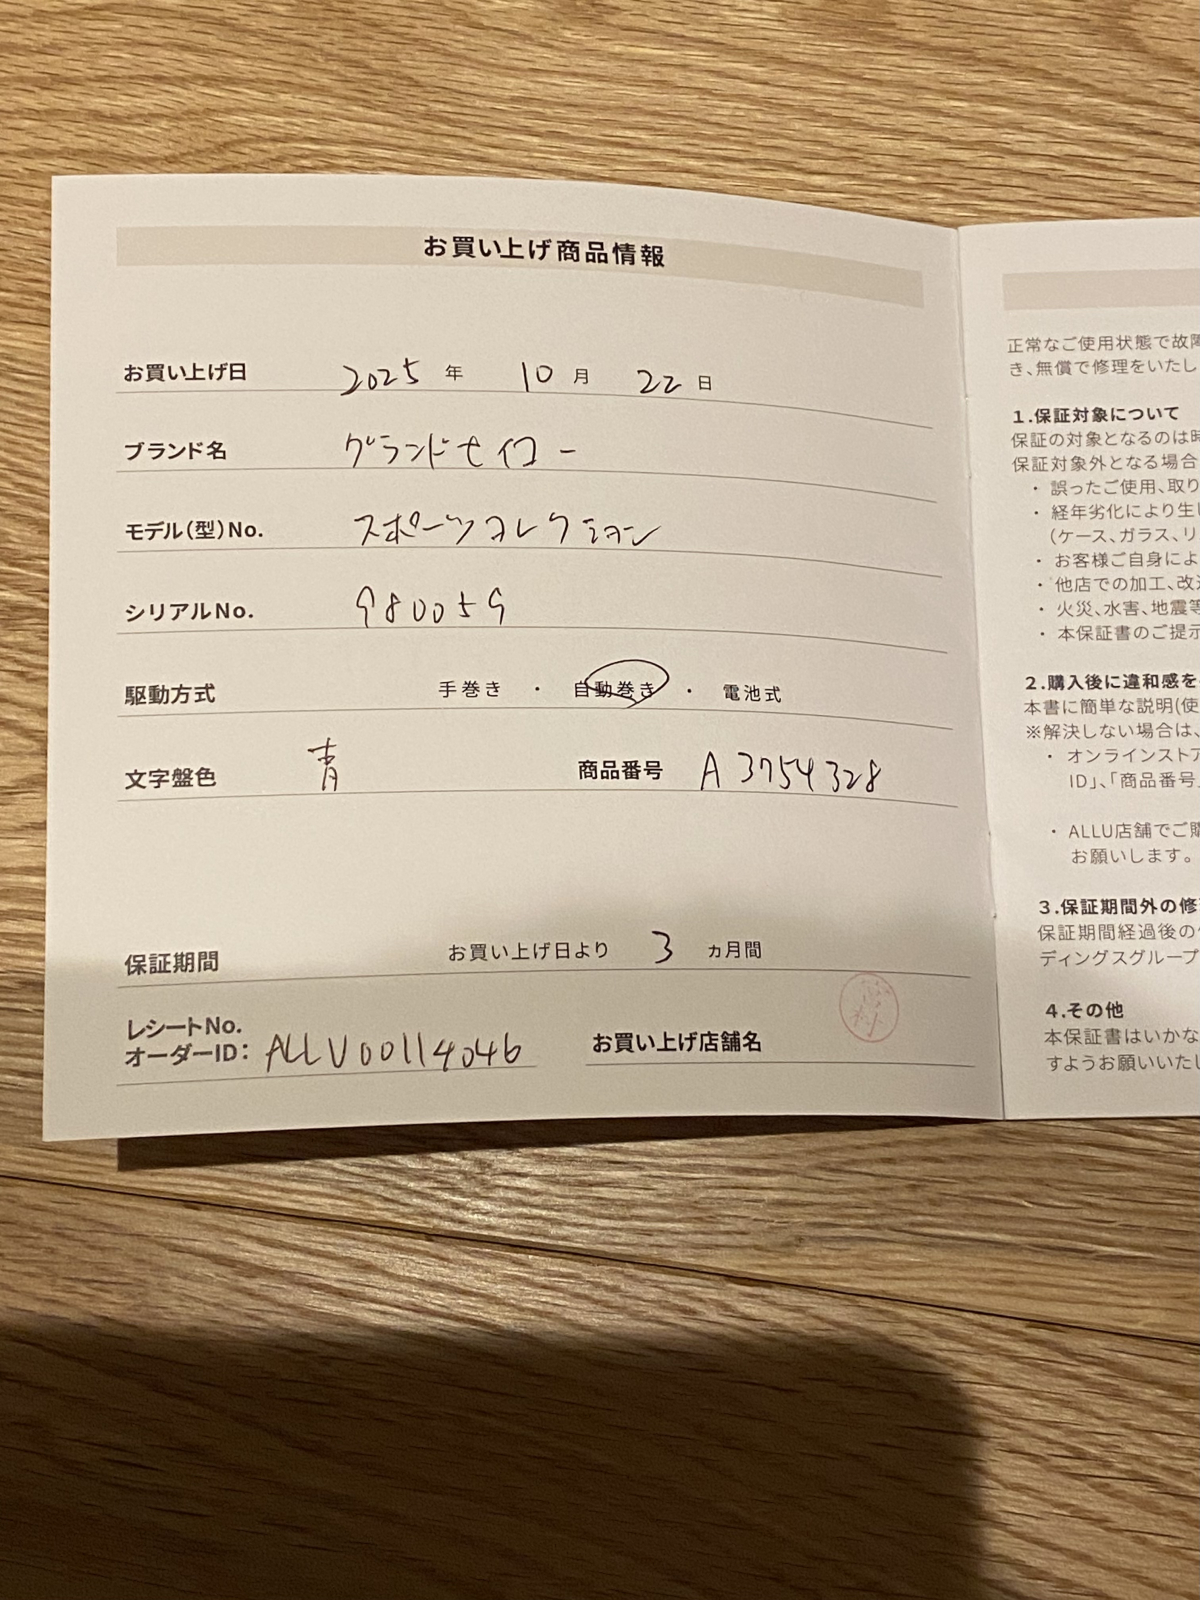 お買い上げ商品情報
お買い上げ日 2025 年 10 月 22 日
ブランド名 グランドセイコー
モデル(型)No. スポーツコレクション
シリアルNo. 980059
駆動方式 手巻き ・ 自動巻き ・ 電池式
文字盤色 青 商品番号 A3754328
保証期間 お買い上げ日より 3 ヵ月間
レシートNo.
オーダーID: ALLU00114046 お買い上げ店舗名
正常なご使用状態で故障
き、無償で修理をいたし
1.保証対象について
保証の対象となるのは時
保証対象外となる場合
・ 誤ったご使用、取り
・ 経年劣化により生じ
(ケース、ガラス、リ
・ お客様ご自身によ
・ 他店での加工、改造
・ 火災、水害、地震等
・ 本保証書のご提示
2.購入後に違和感を
本書に簡単な説明(使
※解決しない場合は、
・ オンラインストア
ID」、「商品番号」
・ ALLU店舗でご購
お願いします。
3.保証期間外の修
保証期間経過後の
ディングスグループ
4.その他
本保証書はいかな
すようお願いいたし